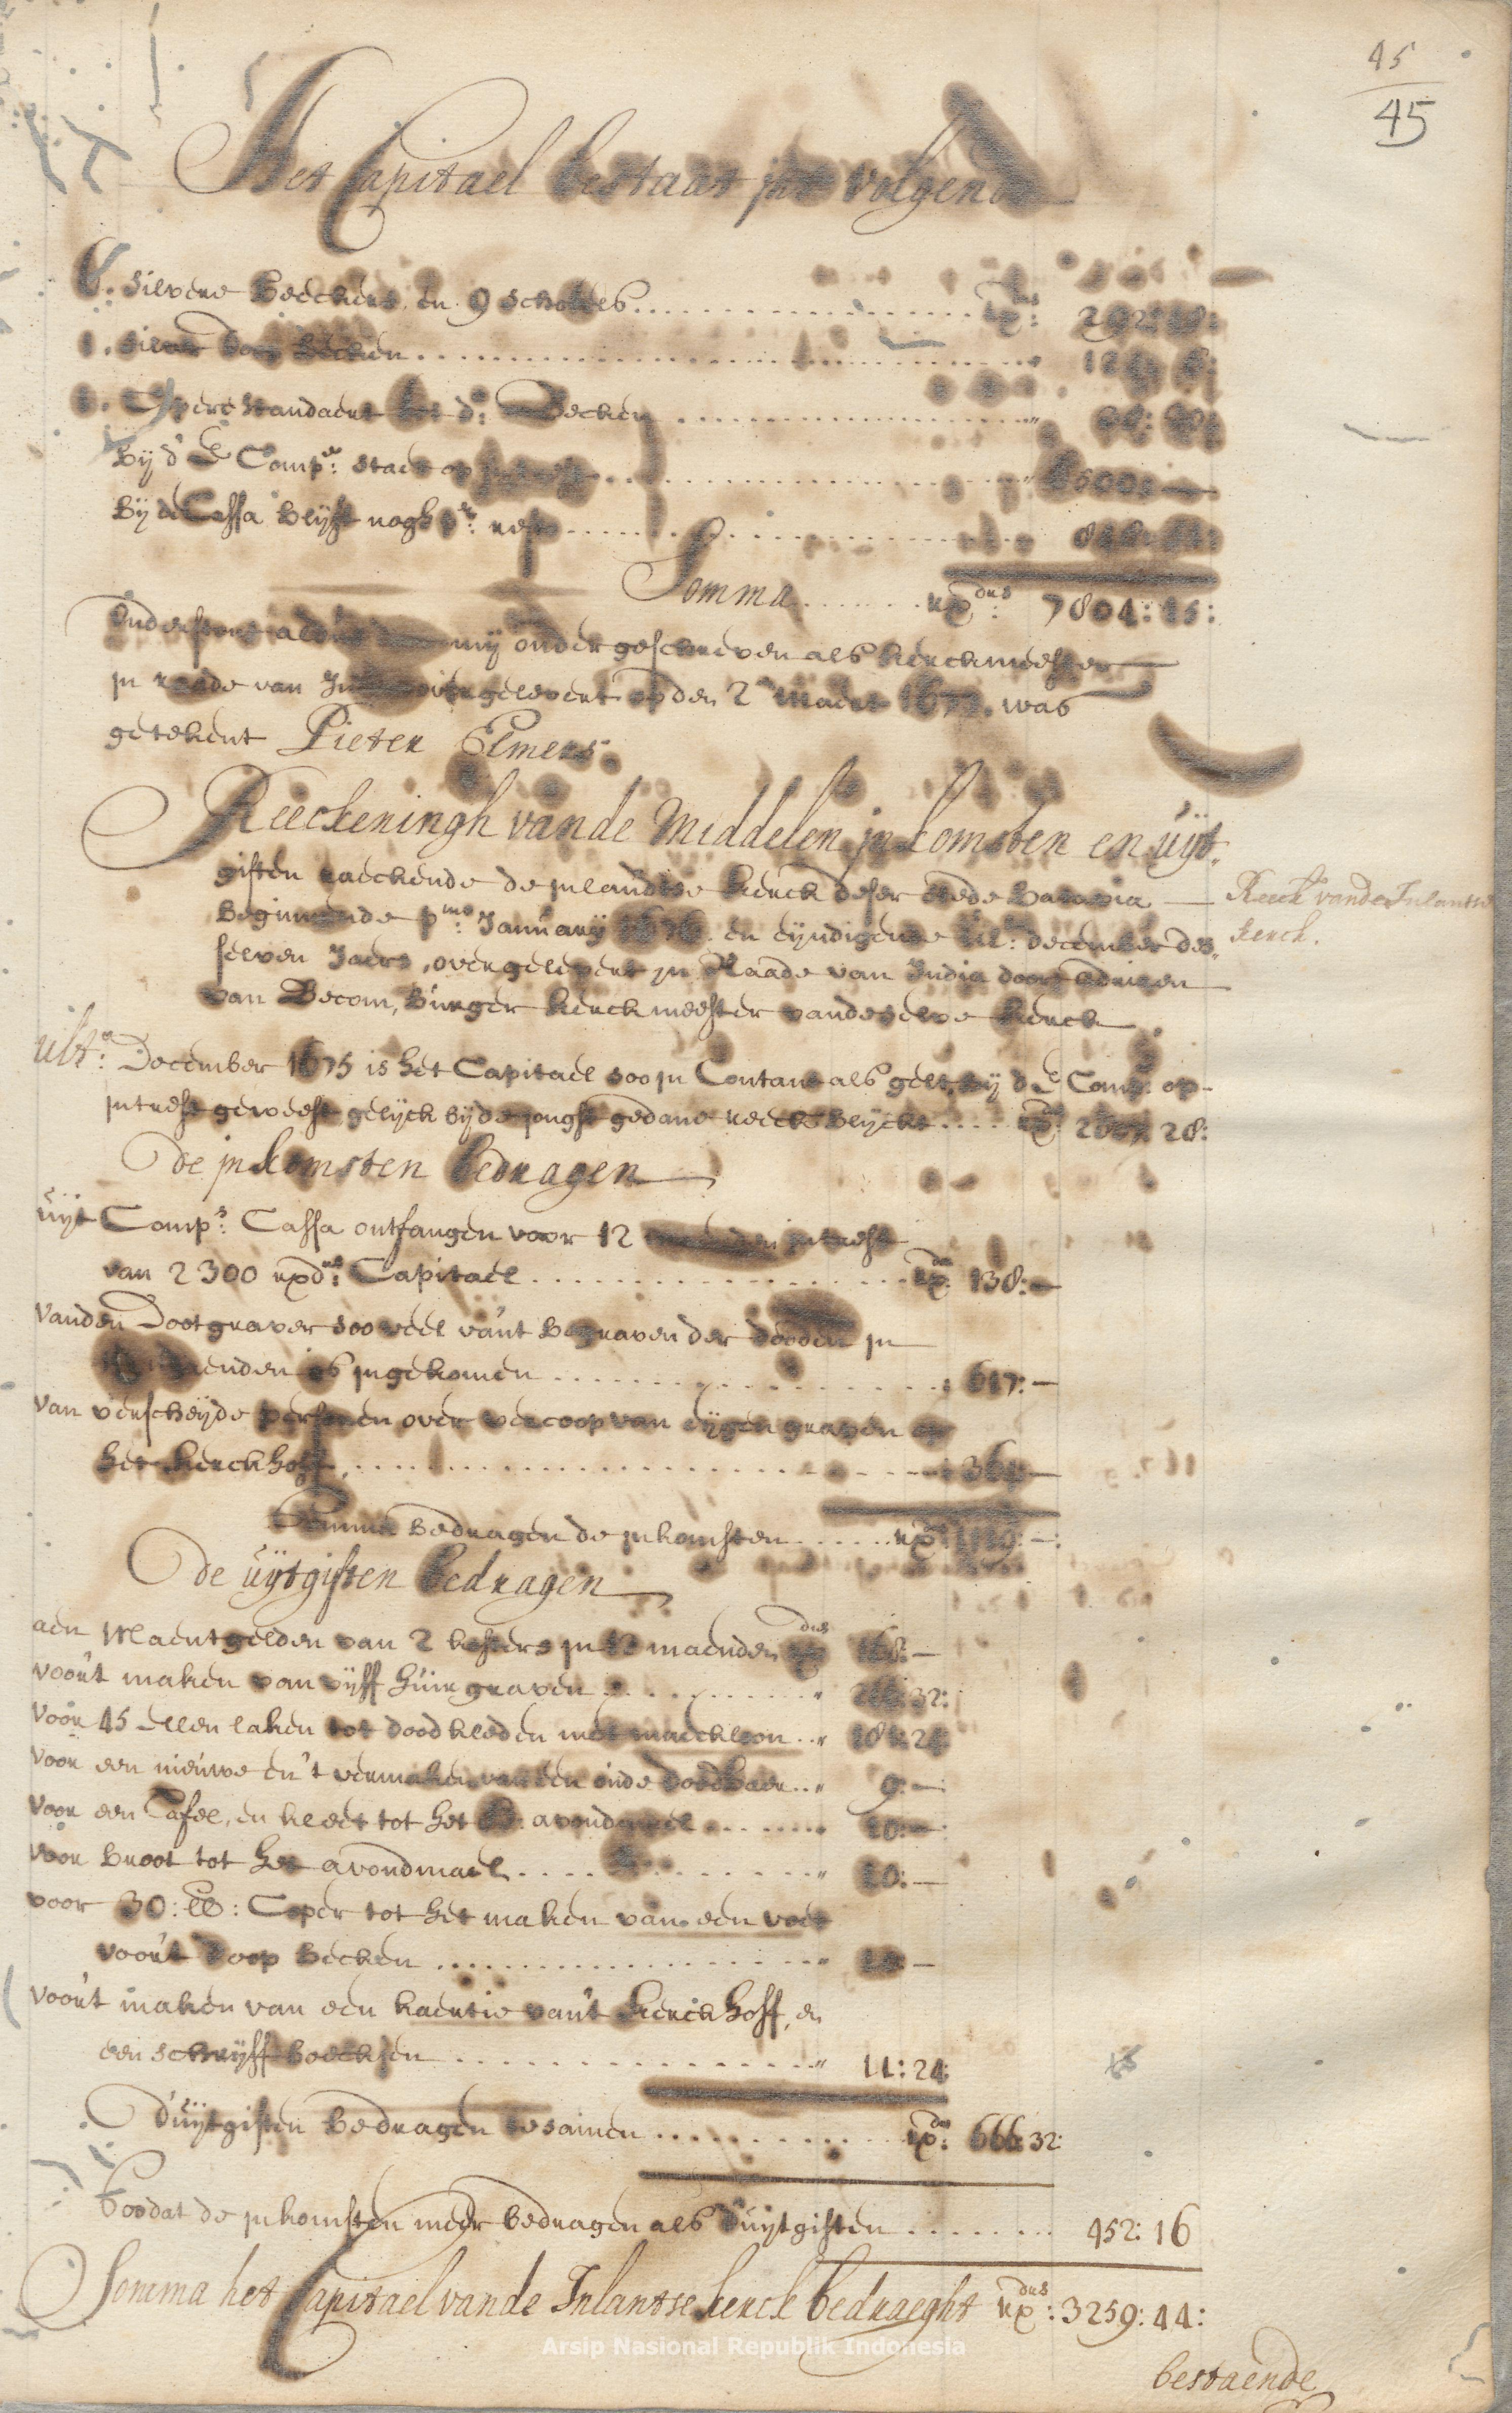 45
45
Het Capitael bestaat jnt volgende
silvere Beeckers en 9 schotels rx: 292:
1. silver doop Becken
1. Copere standaert tot d: Becken
Bij d'E Comp: staet op 
Bij de Cassa blijft nogh p: rest
Somma rxds: 7804: 15:
mij ondergeschreven als kerckmeester
jn raade van overgelevert op den 2 Maert was
getekent Pieter Elmers.
Reeckeningh van de Middelen jnkomsten en uijt,
giften raeckende de jnlandse kerck deser stede Batavia
Reeck vande Inlantse
kerck.
Beginnende pmo: Januarij 1676 en eijndigende ult: december des,
selven Jaers, overgelevert jn Raade van India door Adriaen
van Becom, Burger kerckmeester vandeselve kerck
ulto: December 1675 is het Capitael soo jn Contant als gelt bij d'E Comp: op
jntrest geweest gelijck bij de jongst gedane reeck: blijckt rx: 28:
De jnkomsten bedragen
uijt Comps: Cassa ontfangen voor 12 maenden jntrest
van 2300 rxds: Capitael rx: 138:—
vanden Dootgraver soo veel van't Begraven der dooden jn
maenden is jngekomen 617:—
van verscheijde persoonen over vercoop van eijgen graven op
het kerckhoff 364:—
Somma Bedragen de jnkomsten rx: 1119:—:
De uijtgiften bedragen
aen Maentgelden van 2 kosters jn 12 maenden rx 168:—
voor't maken van vijff huir graven 32:
voor 45 ellen laken tot doodkleden met maeckloon 181:24:
voor een nieuwe en 't vermaken van een oude doodbaer 9:—
voor een Tafel, en kleet tot het avondmael
voor Broot tot het avondmael 20:—
voor 30: lb: Coper tot het maken van een voet
voor't doop Becken
voor't maken van een kaertie van't kerckhoff, en
een schrijff boeckjen 11:24:
D'uijtgiften Bedragen tesamen rx: 666:32:
Soodat de jnkomsten meer bedragen als d'uijtgiften 452:16
Somma het Capitael vande Inlantse kerck bedraeght rxds: 3259:44:
bestaende
Arsip Nasional Republik Indonesia